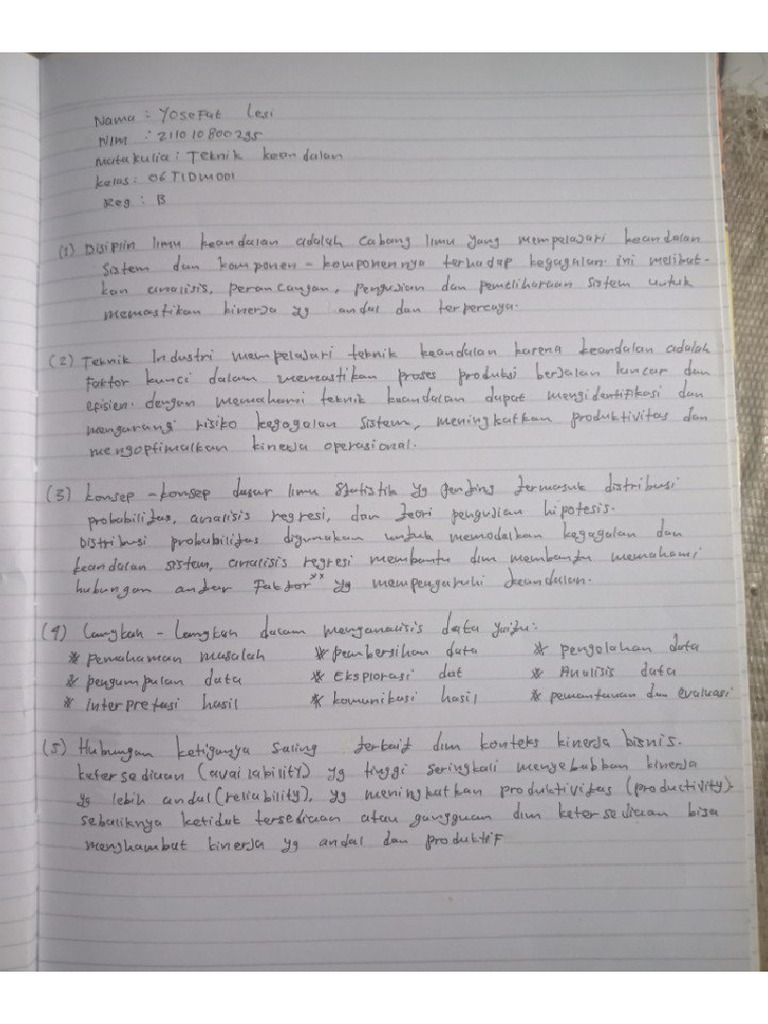 Nama : Yosefat Lesi
NIM : 211010800295
Matakulia : Teknik keandalan
kelas : 06TIDM001
Reg : B
(1) Disiplin ilmu keandalan adalah cabang ilmu yang mempelajari keandalan
Sistem dan komponen - komponennya terhadap kegagalan. ini melibat-
kan analisis, perancangan, pengujian dan pemeliharaan sistem untuk
memastikan kinerja yg andal dan terpercaya.
(2) Teknik Industri mempelajari teknik keandalan karena keandalan adalah
Faktor kunci dalam memastikan proses produksi berjalan lancar dan
efisien. dengan memahami teknik keandalan dapat mengidentifikasi dan
mengurangi risiko kegagalan sistem, meningkatkan produktivitas dan
mengoptimalkan kinerja operasional.
(3) konsep - konsep dasar ilmu Statistik yg penting termasuk distribusi
probabilitas, analisis regresi, dan teori pengujian hipotesis.
Distribusi probabilitas digunakan untuk memodelkan kegagalan dan
keandalan sistem, analisis regresi membantu dlm membantu memahami
hubungan antar Faktor** yg mempengaruhi keandalan.
(4) Langkah - Langkah dalam menganalisis data yaitu:
* pemahaman masalah * pembersihan data * pengolahan data
* pengumpulan data * Eksplorasi dat * Analisis data
* interpretasi hasil * komunikasi hasil * pemantauan dan evaluasi
(5) Hubungan ketiganya saling terkait dlm konteks kinerja bisnis.
ketersediaan (availability) yg tinggi seringkali menyebabkan kinerja
yg lebih andal (reliability), yg meningkatkan produktivitas (productivity).
sebaliknya ketidak tersediaan atau gangguan dlm ketersediaan bisa
menghambat kinerja yg andal dan produktif